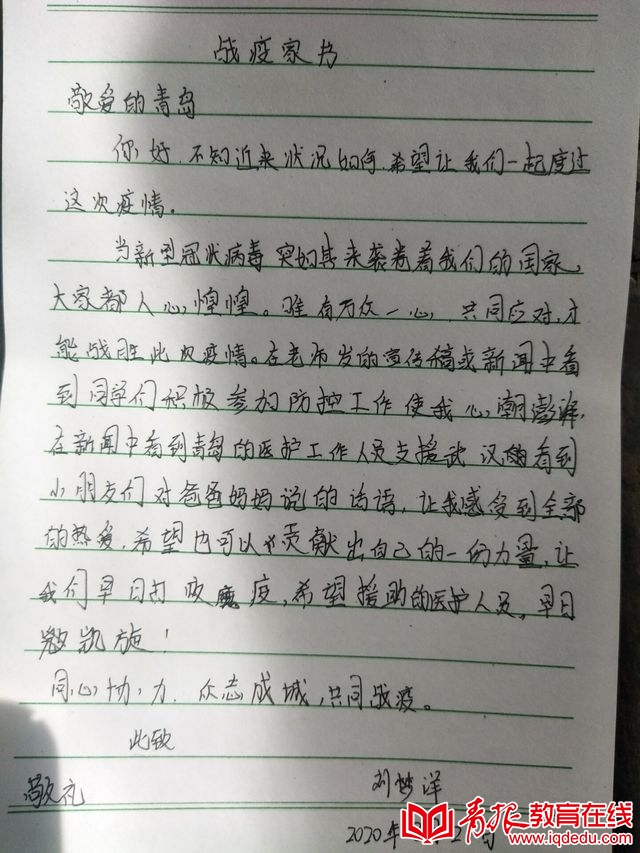 战疫家书
敬爱的青岛
你好.不知近来状况如何.希望让我们一起度过
这次疫情。
当新型冠状病毒突如其来袭卷着我们的国家,
大家都人心惶惶。唯有万众一心,共同应对,才
能战胜此次疫情。在老师发的宣传稿或新闻中看
到同学们积极参加防控工作使我心潮澎湃,
在新闻中看到青岛的医护工作人员支援武汉看到
小朋友们对爸爸妈妈说的话语,让我感受到全部
的热爱.希望也可以贡献出自己的一份力量,让
我们早日打败疫,希望援助的医护人员,早日
凯旋!
同心协力.众志成城,共同战疫。
此致
敬礼
刘梦洋
2020年
青报教育在线
www.iqdedu.com